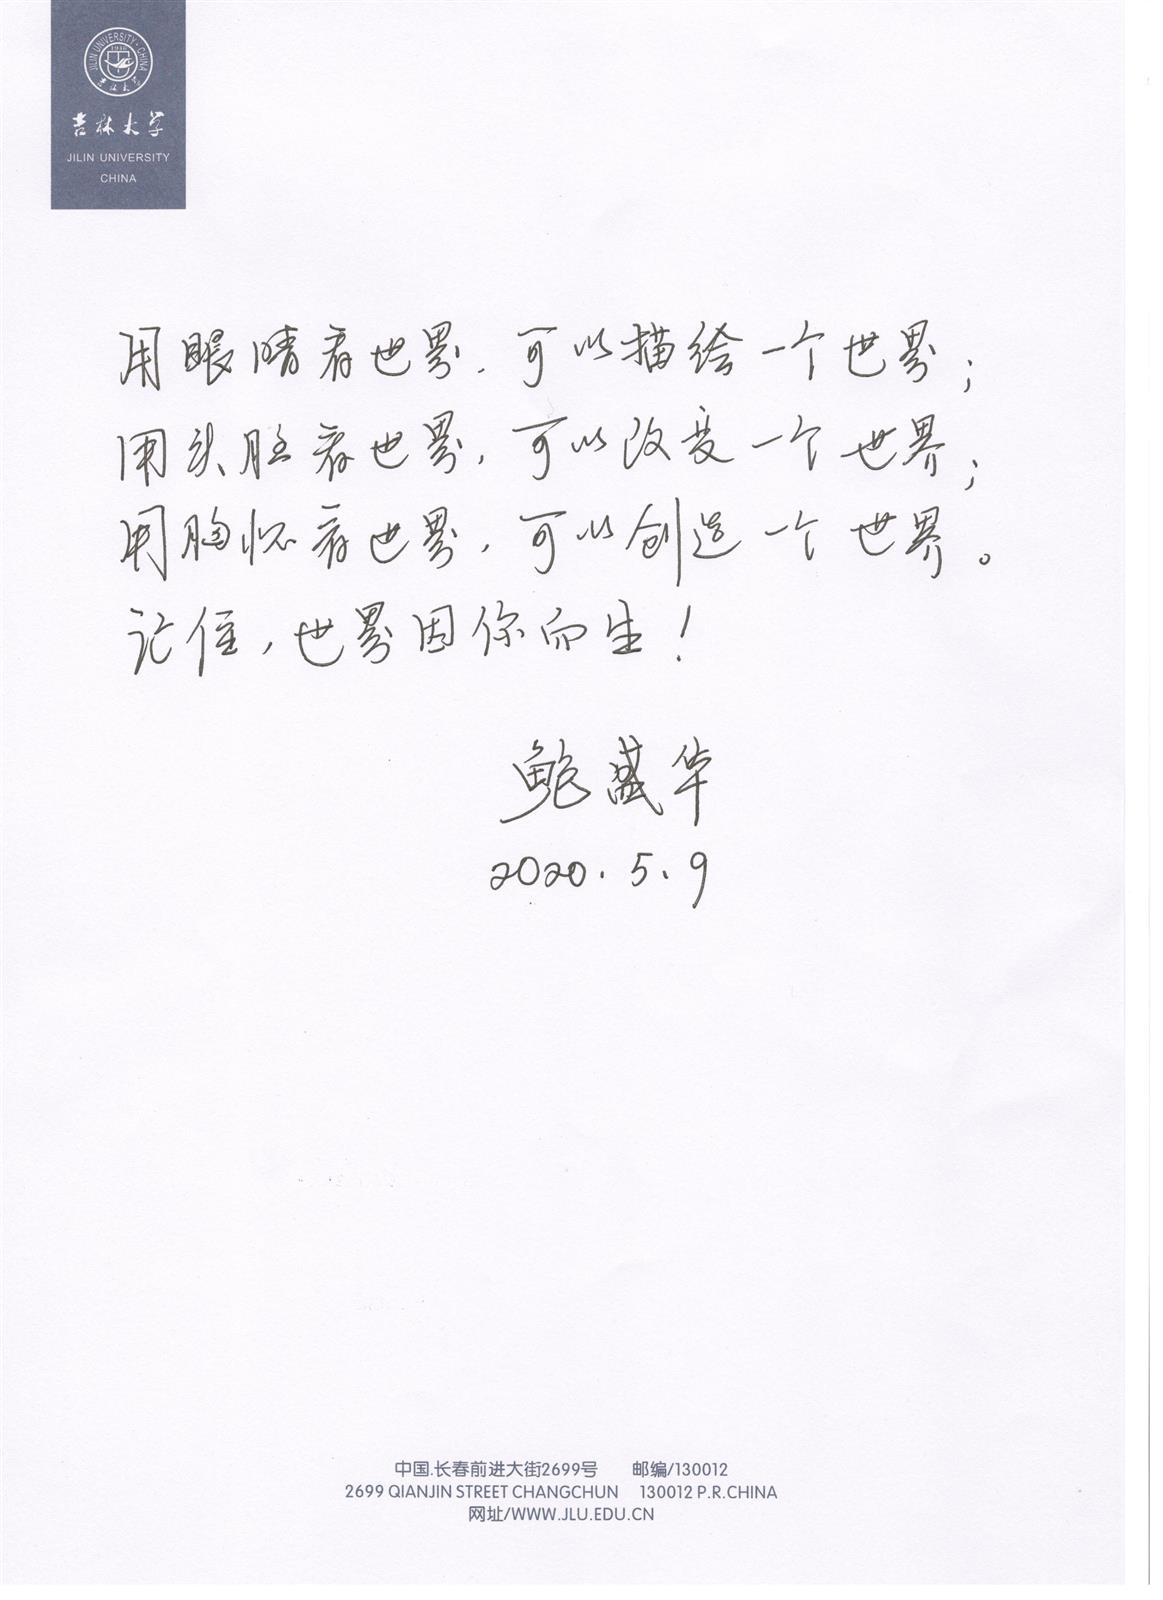 JILIN UNIVERSITY · CHINA
1946
吉林大学
吉林大学
JILIN UNIVERSITY
CHINA
用眼睛看世界，可以描绘一个世界；
用头脑看世界，可以改变一个世界；
用胸怀看世界，可以创造一个世界。
记住，世界因你而生！
鲍盛华
2020.5.9
中国.长春前进大街2699号 邮编/130012
2699 QIANJIN STREET CHANGCHUN 130012 P.R.CHINA
网址/WWW.JLU.EDU.CN